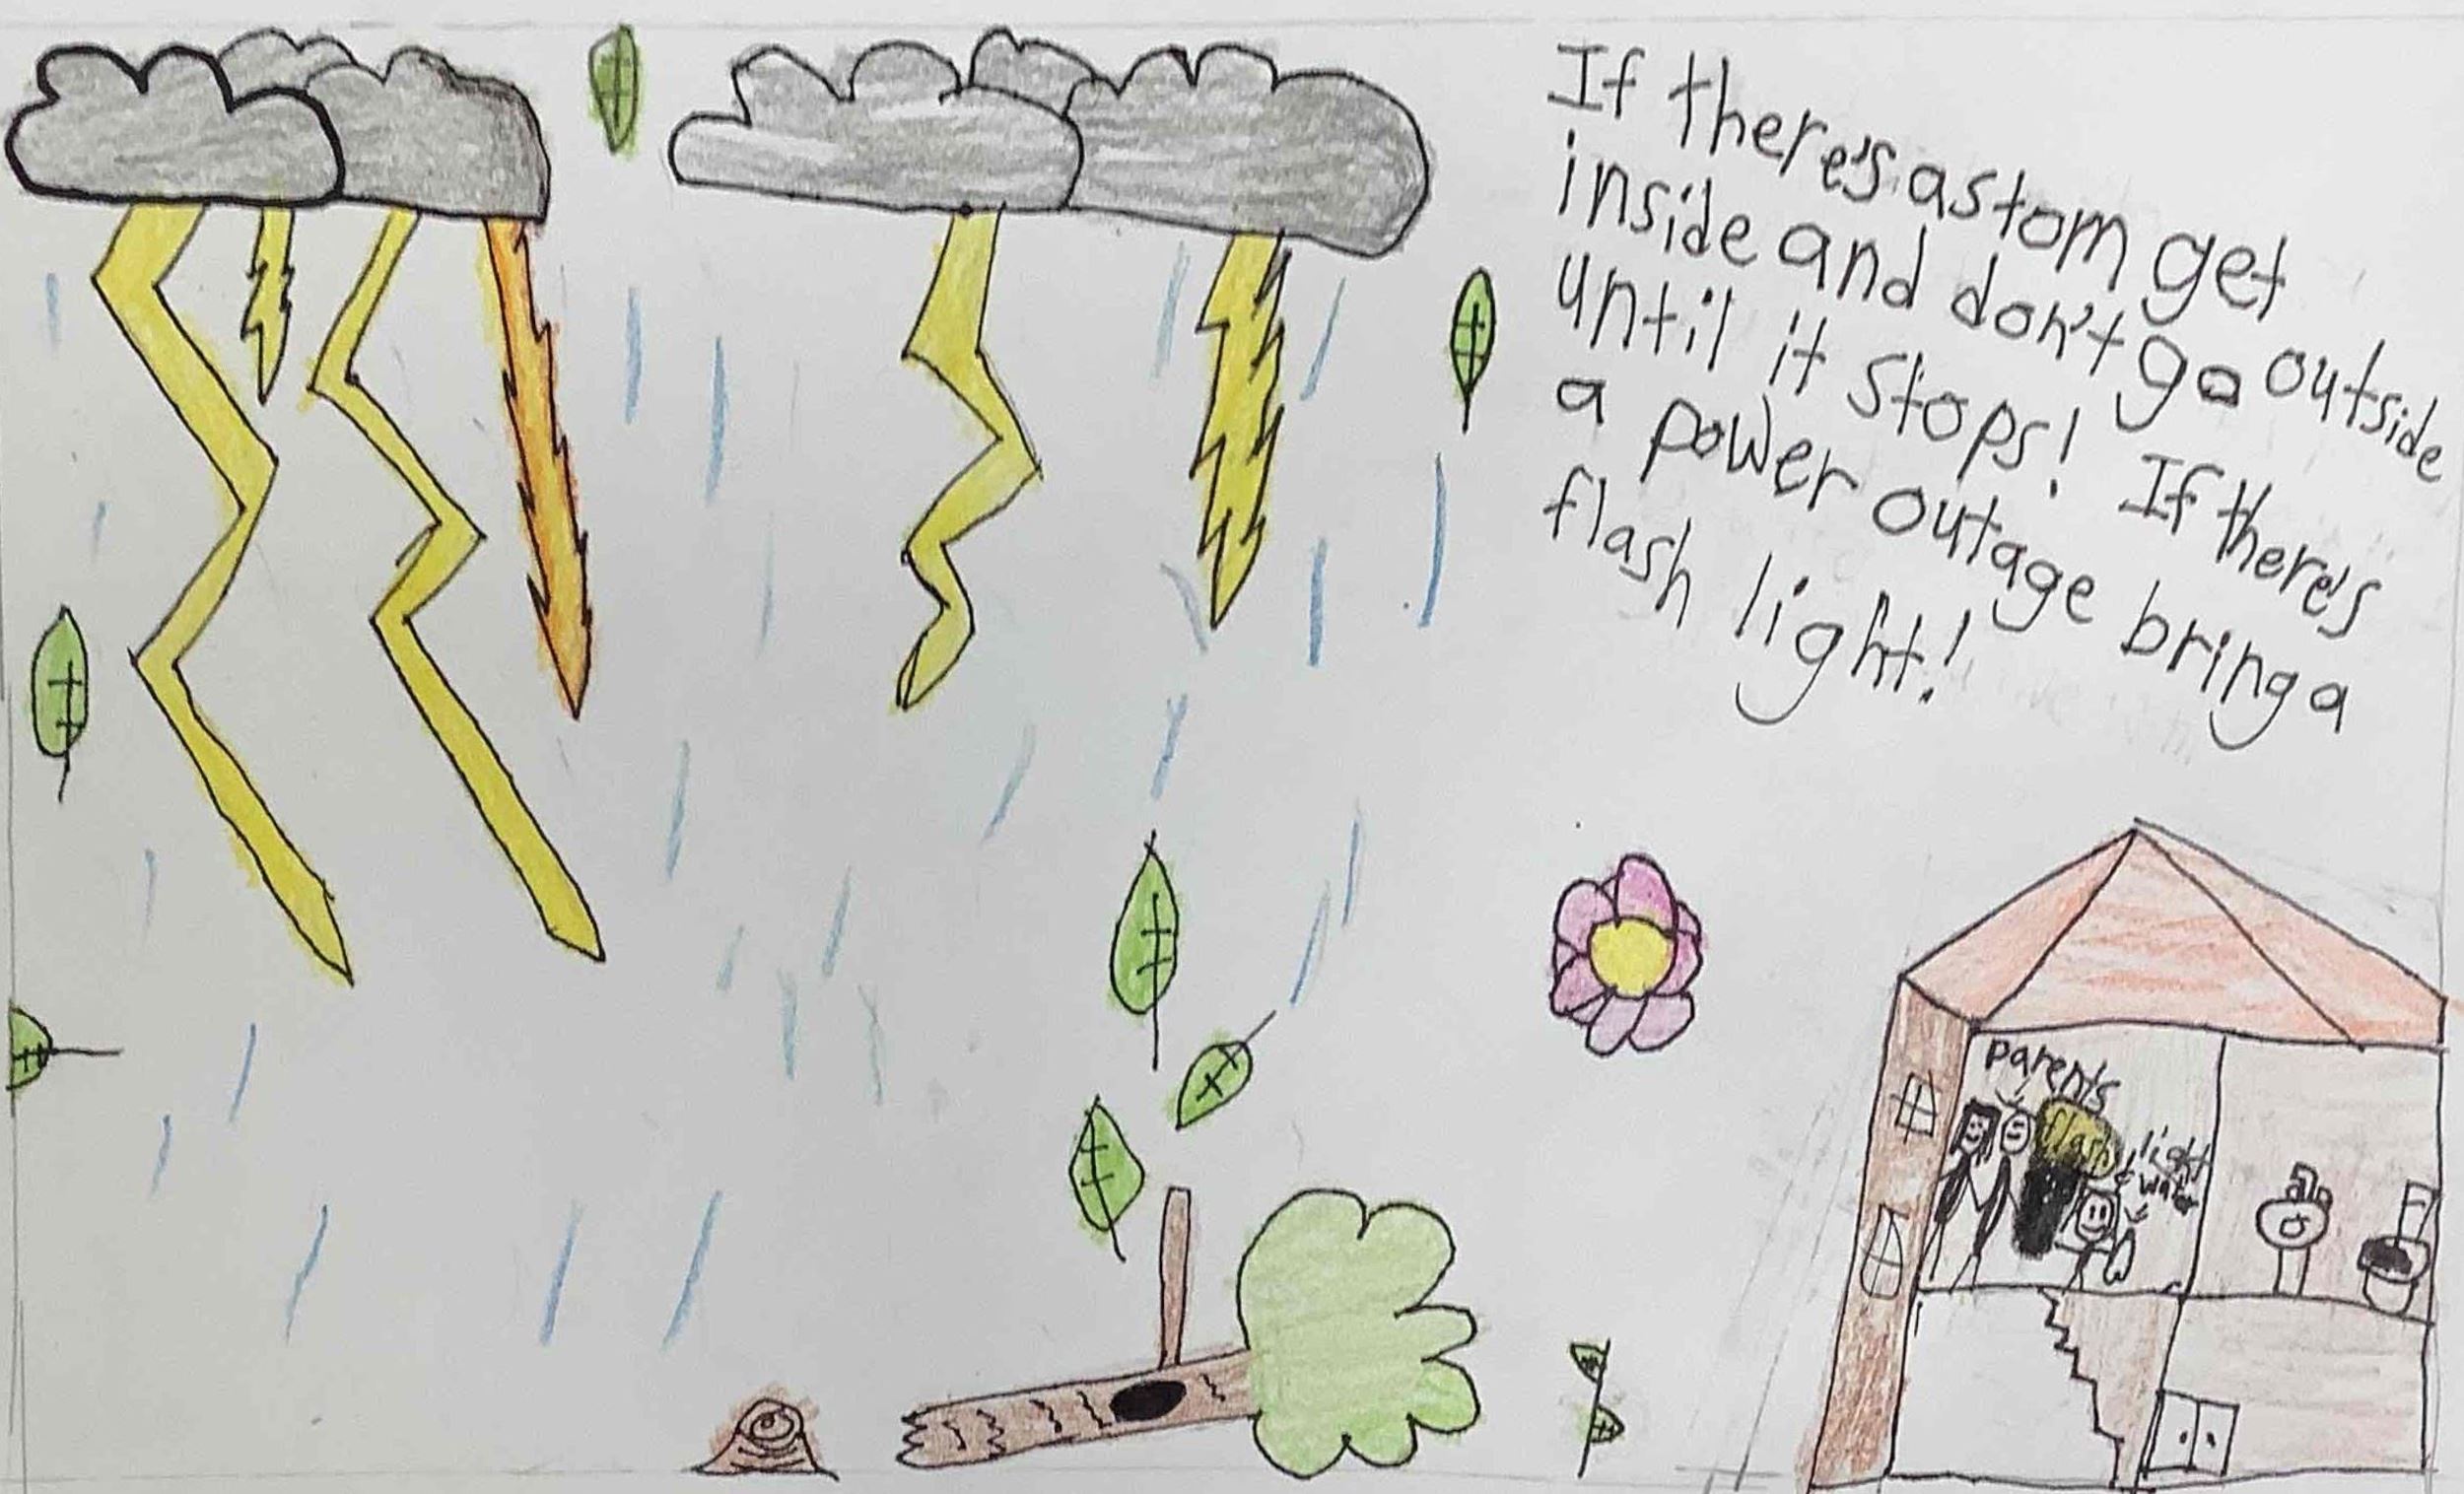 If there's a stom get
inside and don't go outside
until it stops! If there's
a power outage bring a
flash light!
parents
flash light
& water